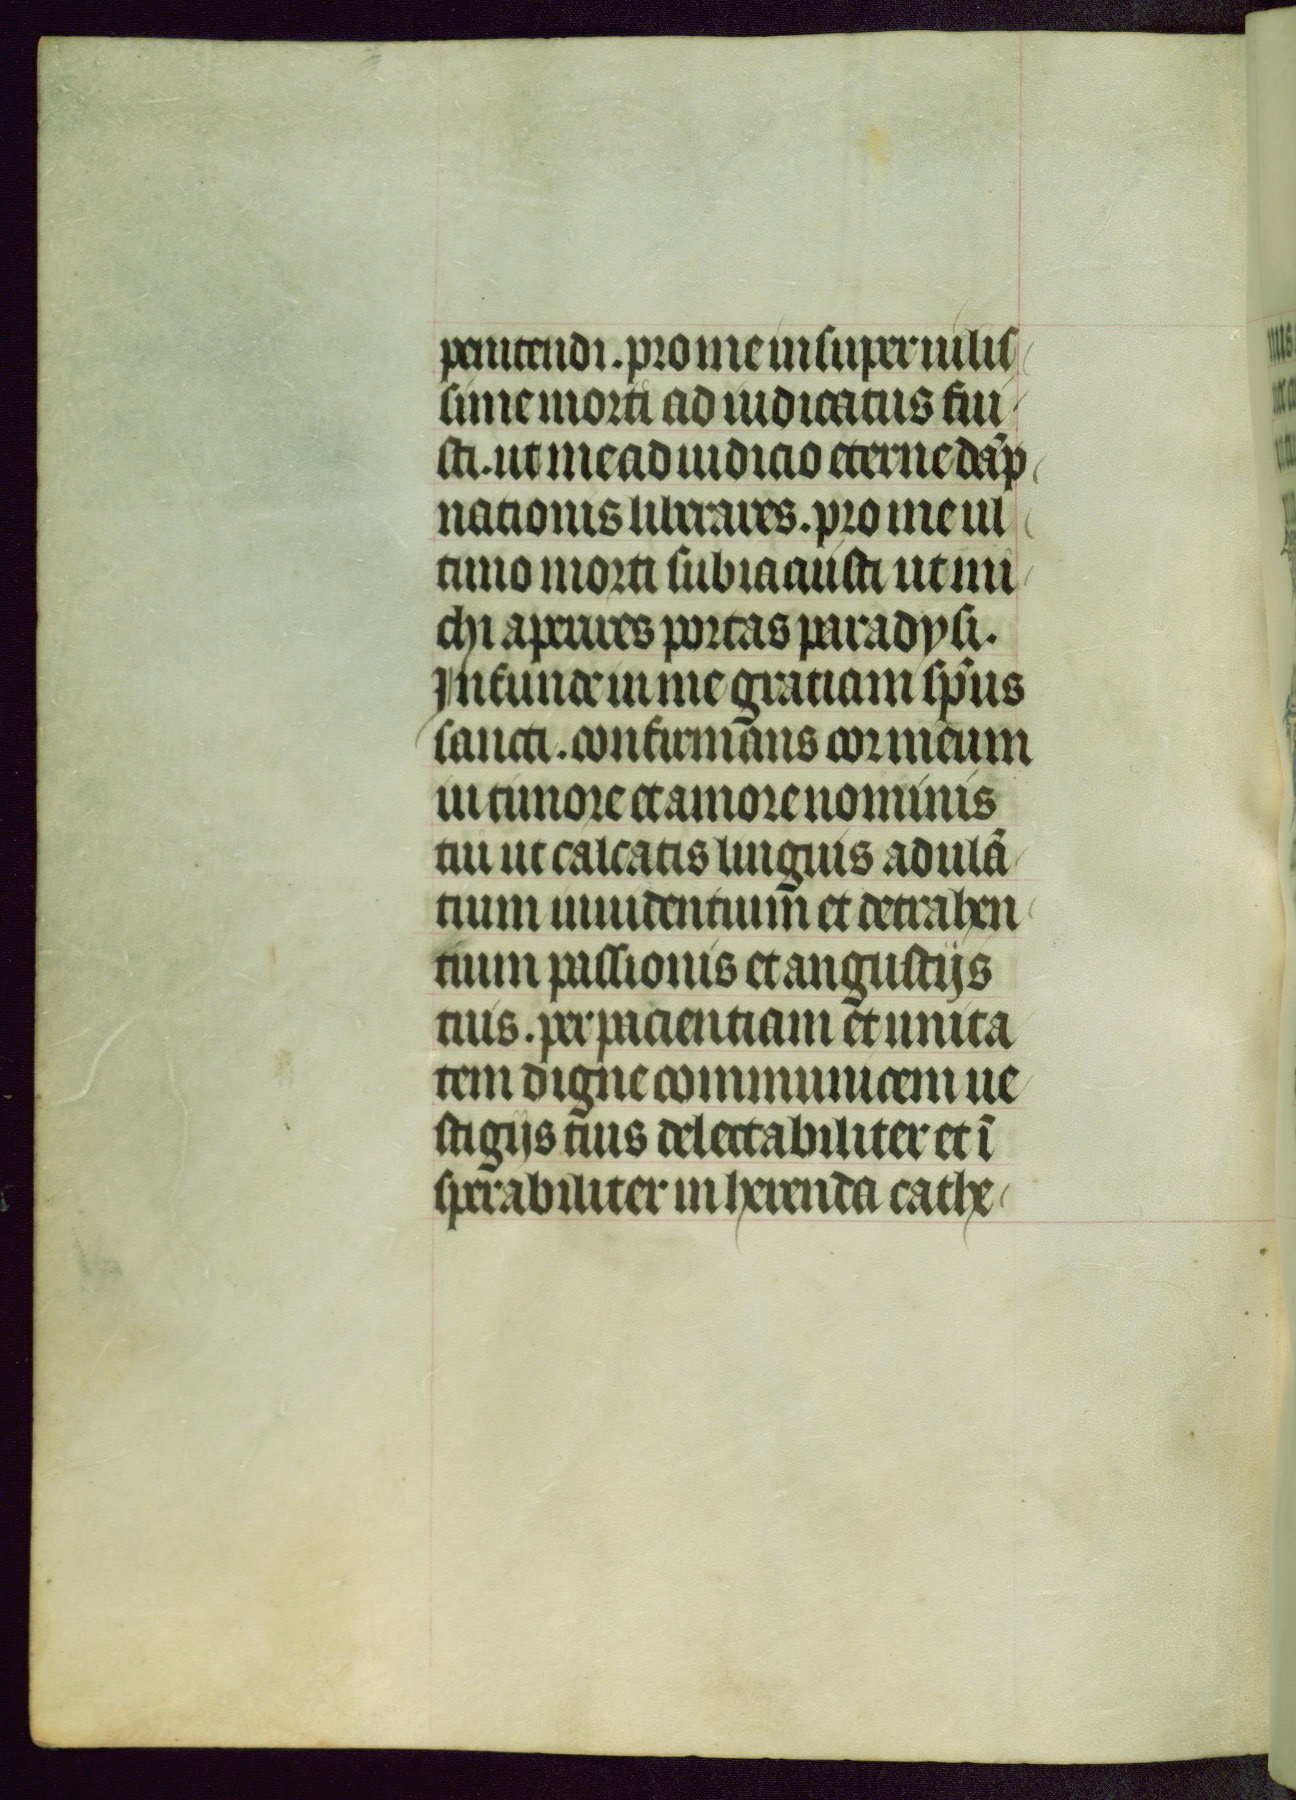 penitendi. pro me insuper uilis
sime morti ad iudicatus fui
sti. ut me ad iudicio eterne dāp
nationis liberares. pro me ul
timo morti subiacuisti ut mi
chi aperires portas paradysi.
Infunde in me gratiam sp̄us
sancti. confirmans cor meum
in timore et amore nominis
tui ut calcatis linguis adulā
tium inuidentium et detrahen
tium passionis et angustijs
tuis. per pacientiam et unita
tem digne communicem ue
stigijs tuis delectabiliter et ī
sperabiliter in herenda cathe